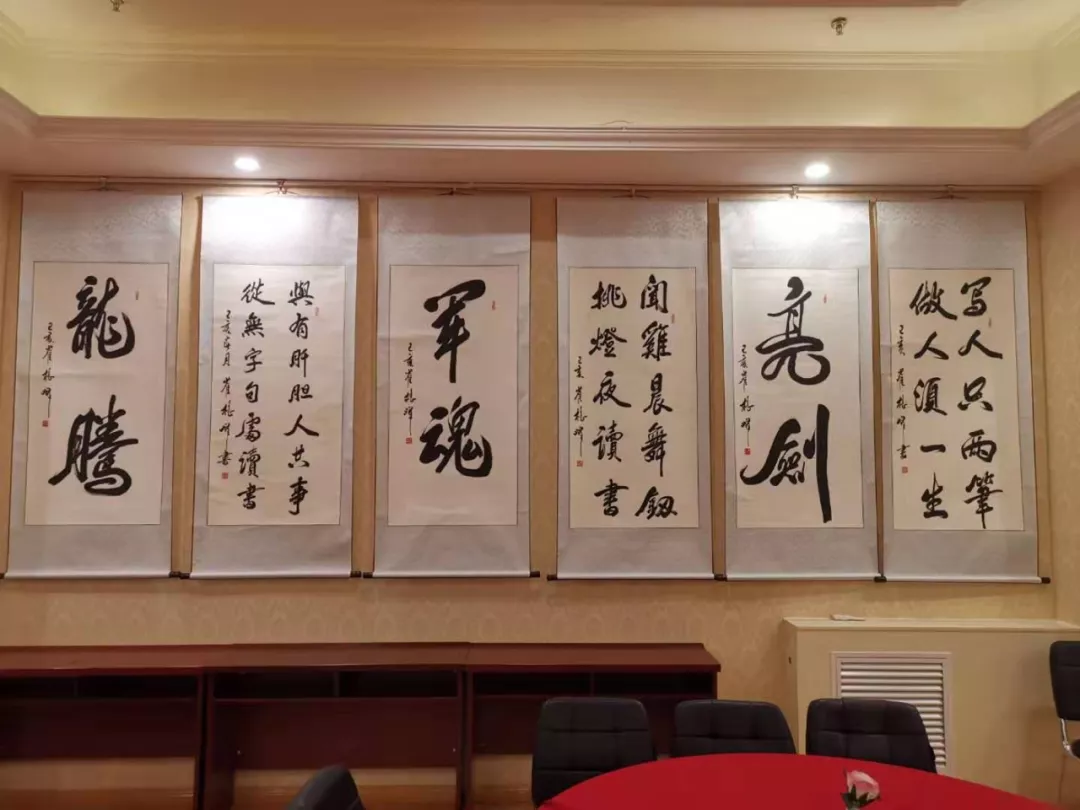 龍騰
己亥崔
與有肝胆人共事
從無字句處讀書
己亥春月崔 書
軍魂
己亥崔
聞雞晨舞釼
挑燈夜讀書
己亥崔
亮劍
己亥崔
写人只两筆
做人須一生
己亥崔 書